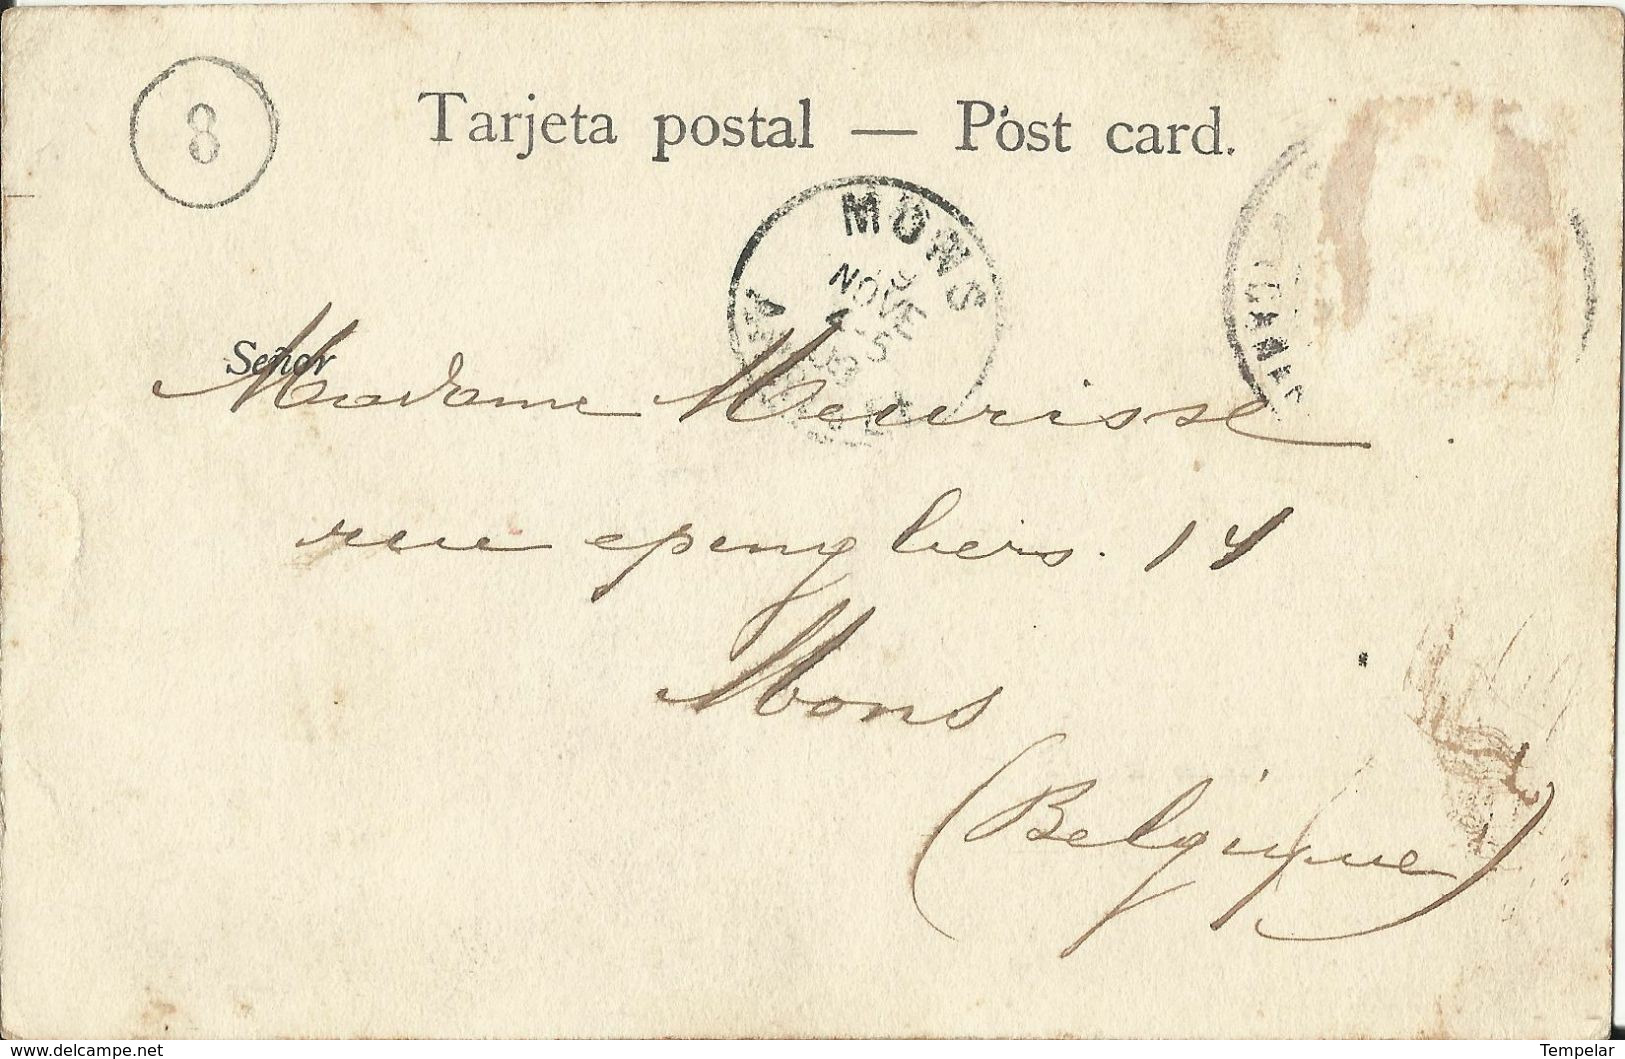 8
Tarjeta postal — Post card.
MONS
NOVE
Señor
Madame Meurisse
rue epengliers. 14
Mons
(Belgique)
www.delcampe.net
Tempelar